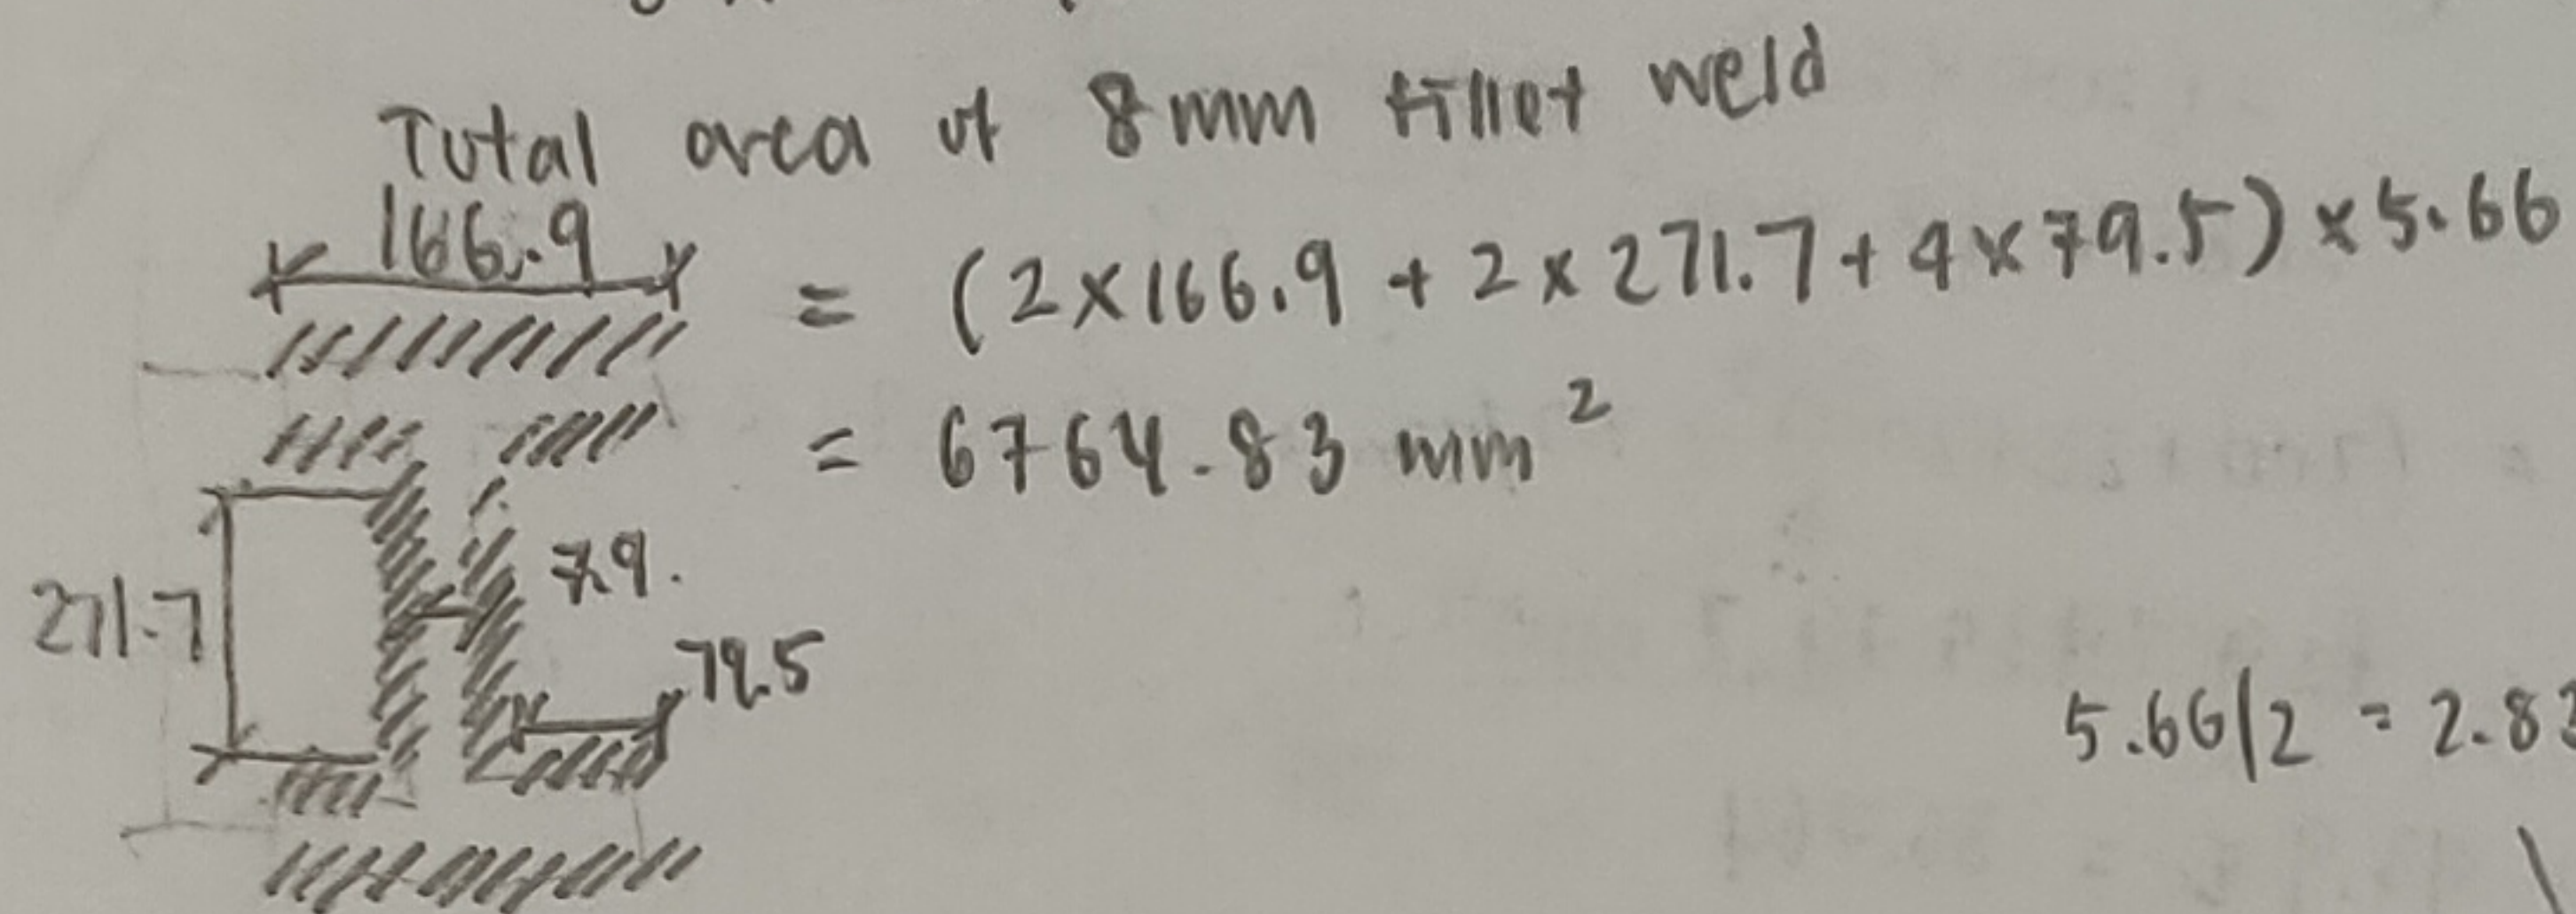 Total area of 8mm fillet weld
166.9
= (2×166.9 + 2×271.7 + 4×79.5) × 5.66
= 6764.83 mm²
7.9.
271.7
79.5
5.66/2 = 2.83